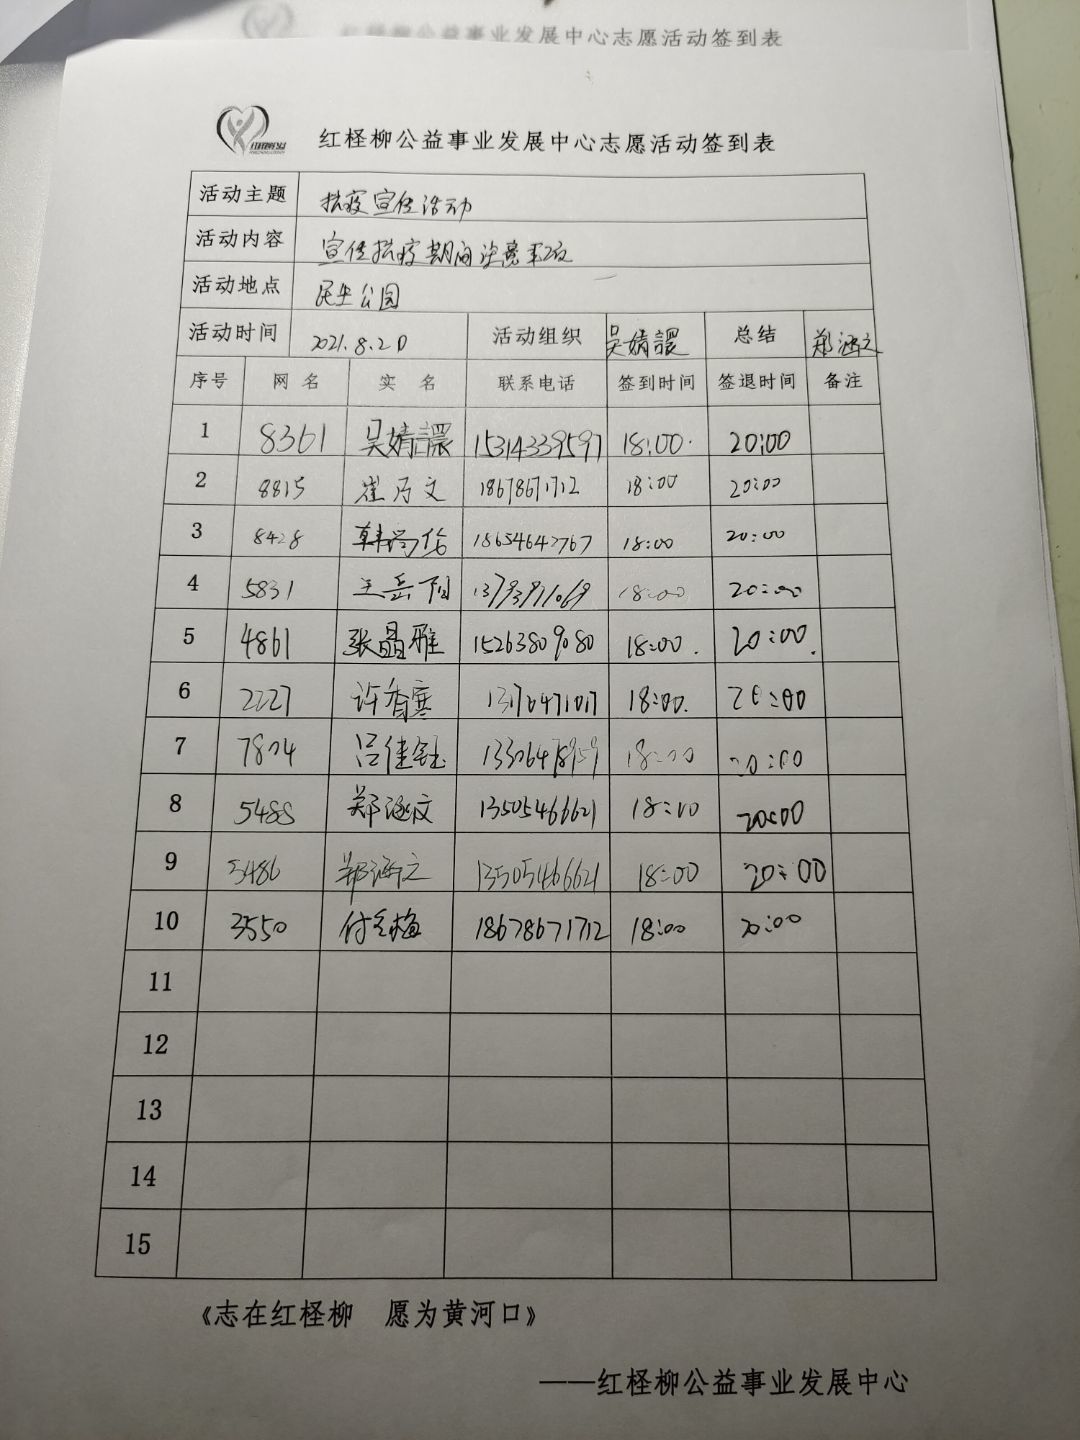 红柽柳公益事业发展中心志愿活动签到表
红柽柳公益事业发展中心志愿活动签到表
活动主题 抗疫宣传活动
活动内容 宣传抗疫期间注意事项
活动地点 民生公园
活动时间 2021.8.20 活动组织 吴婧譞 总结 郑涵文
序号 网名 实名 联系电话 签到时间 签退时间 备注
1 8361 吴婧譞 15314339597 18:00. 20:00
2 8815 崔乃文 18678671712 18:00 20:00
3 8428 韩尚伦 18654642767 18:00 20:00
4 5831 王岳阳 13793971069 18:00 20:00
5 4861 张晶雅 15263809080 18:00. 20:00.
6 2227 许香寒 13176471017 18:00. 20:00
7 7804 吕佳钰 13306478959 18:00 20:00
8 5488 郑涵文 13505466621 18:00 20:00
9 5486 郑涵文 13505466621 18:00 20:00
10 3550 付冬梅 18678671712 18:00 20:00
11
12
13
14
15
《志在红柽柳 愿为黄河口》
——红柽柳公益事业发展中心